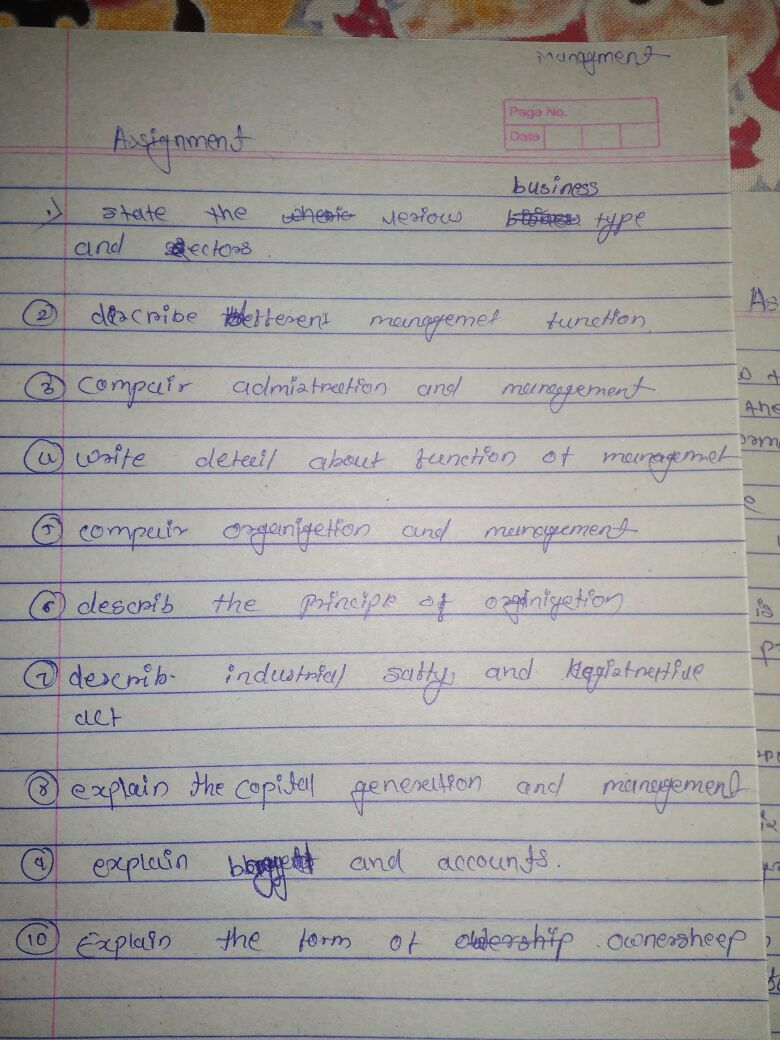 managment
Page No.
Date
Assignment
business
1) state the verious type
and sectors
② discribe defferent managemet function.
③ compair admistraction and management
④ write detail about function of managemet
⑤ compair organigetion and management
⑥ describ the principe of organigetion
⑦ describ. industrial safty, and legistrative
act
⑧ explain the capital generation and management
⑨ explain and accounts.
⑩ Explain the form of ownersheep
As